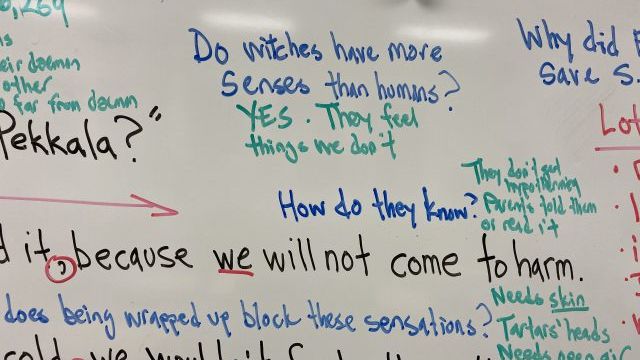 0,269
ns
eir daemon
other
o far from daemon
Pekkala?"
Do witches have more
senses than humans?
YES. They feel
things we don't
Why did
save S
Lot
How do they know?
They don't get
hypothermia
Parents told them
or read it
d it, because we will not come to harm.
does being wrapped up block these sensations?
Needs skin
Tartars' heads
Needs
cold we